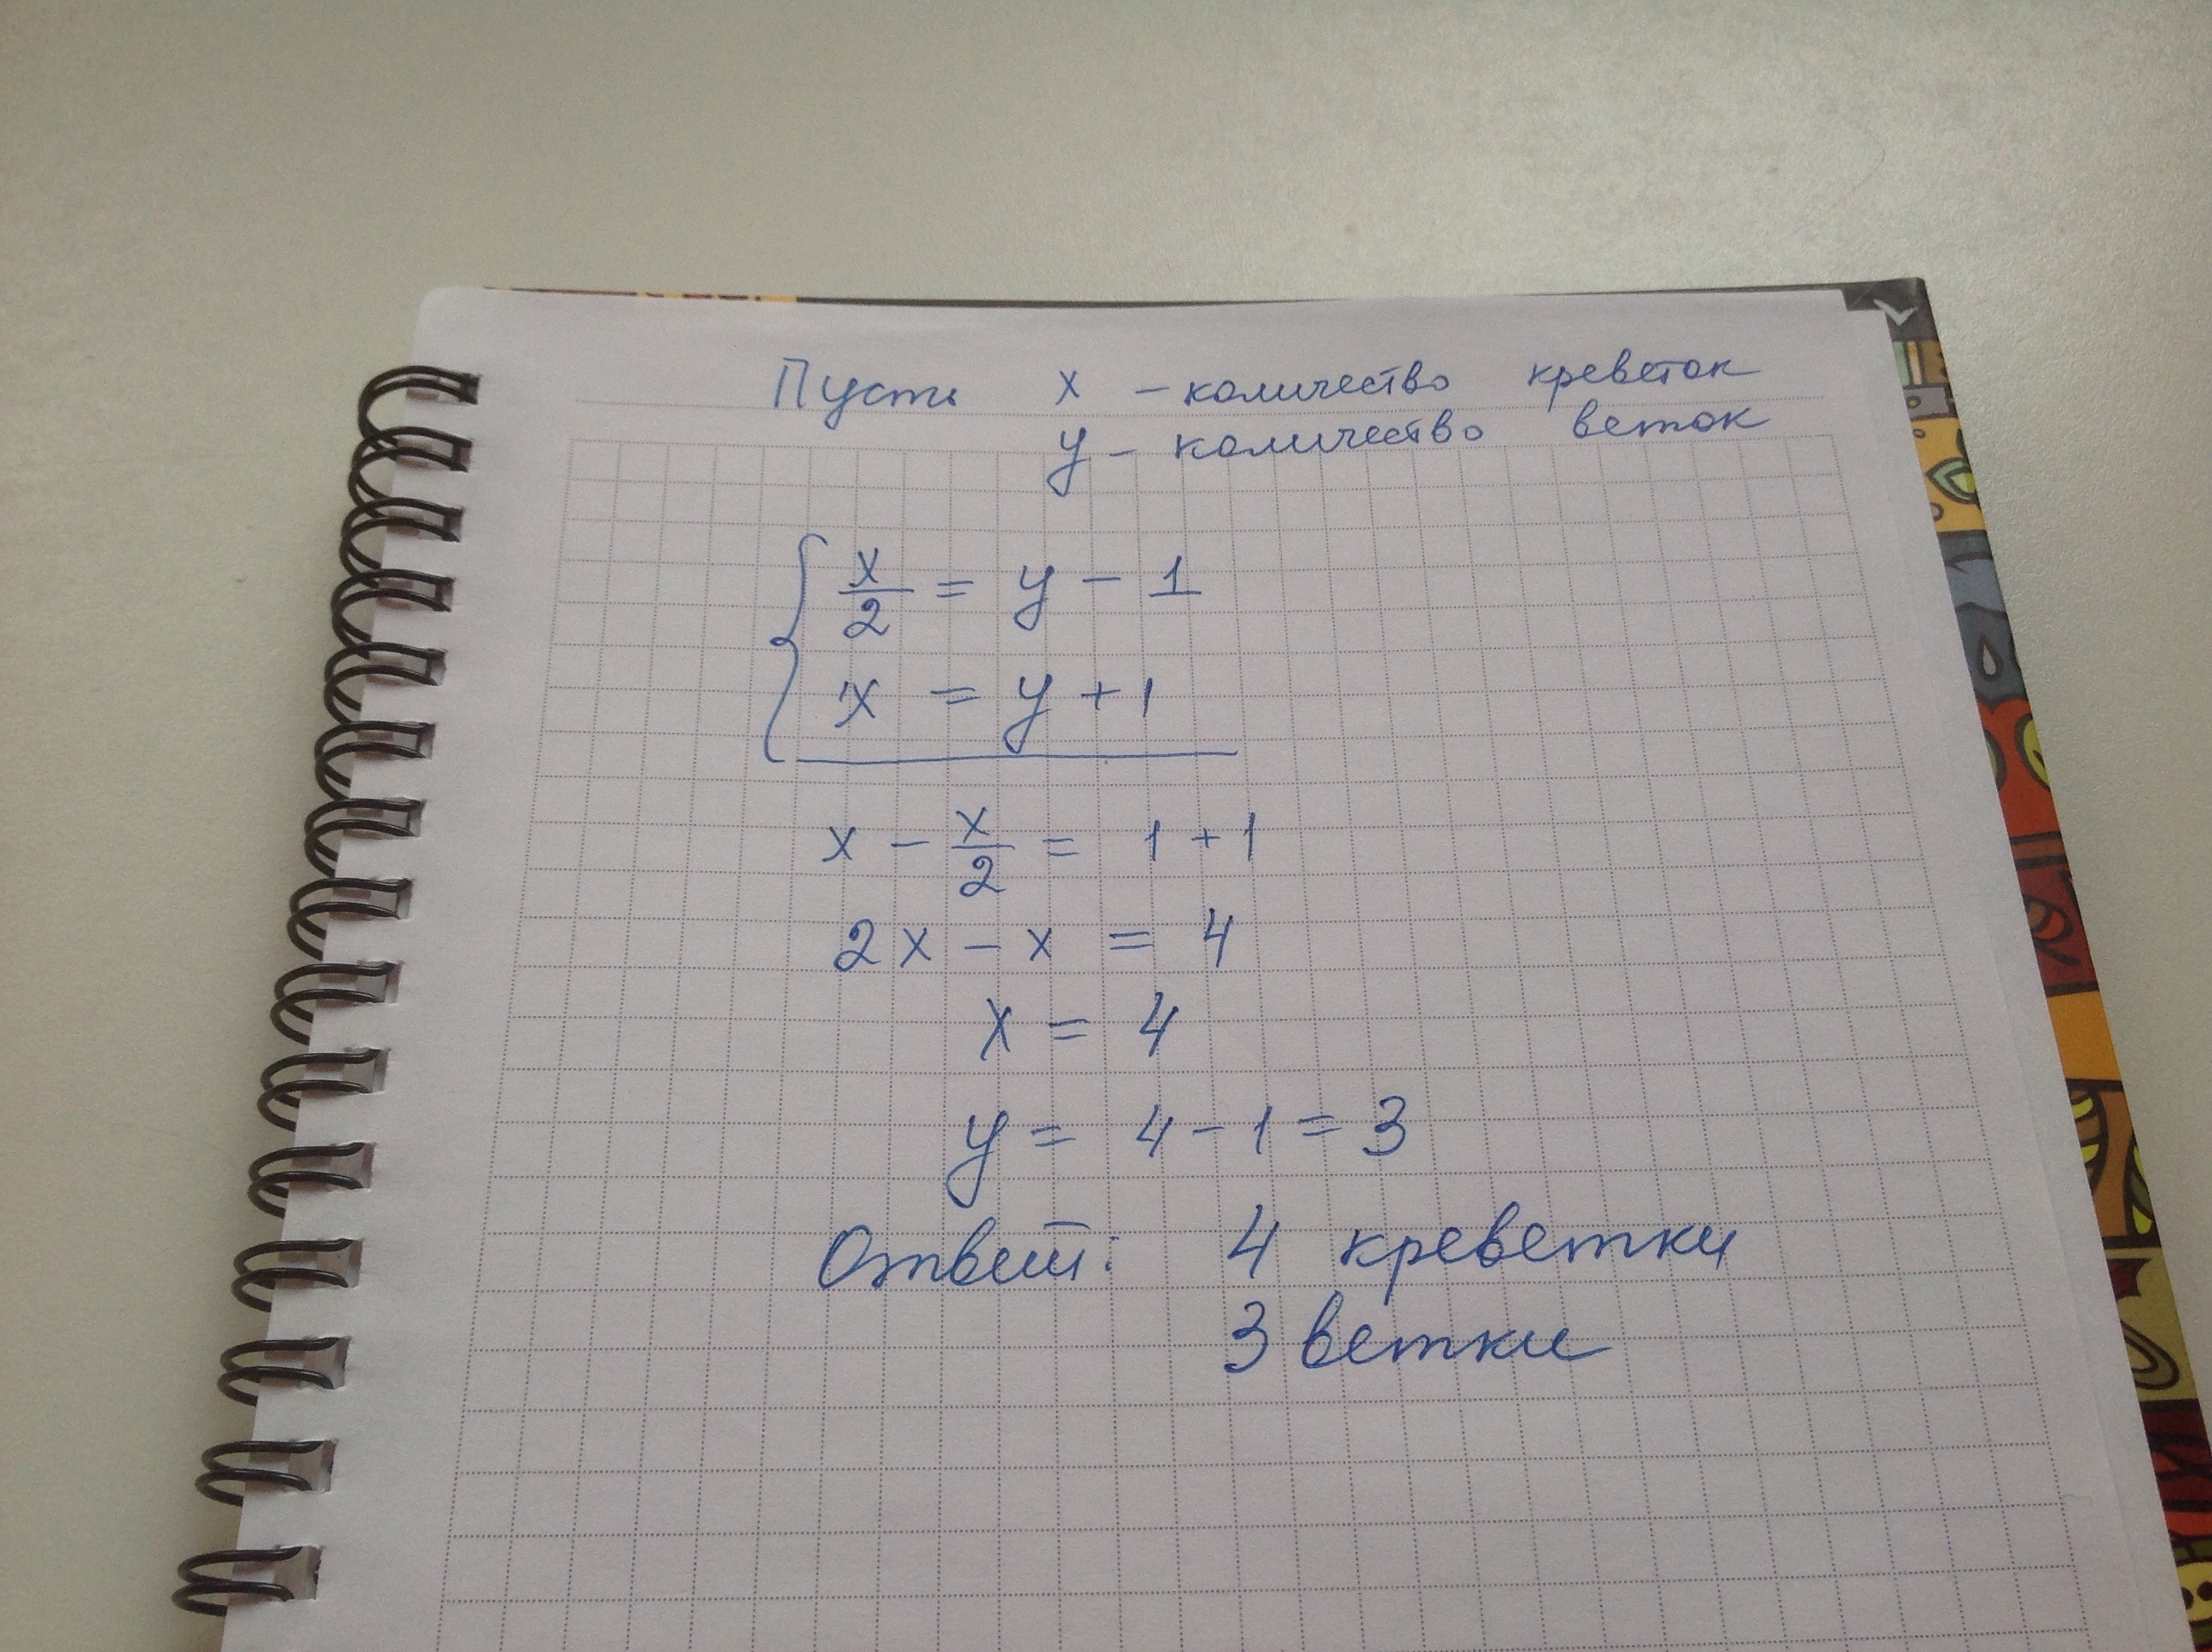 Пусть x - количество креветок
y - количество веток
x/2 = y - 1
x = y + 1
x - x/2 = 1 + 1
2x - x = 4
x = 4
y = 4 - 1 = 3
Ответ: 4 креветки
3 ветки